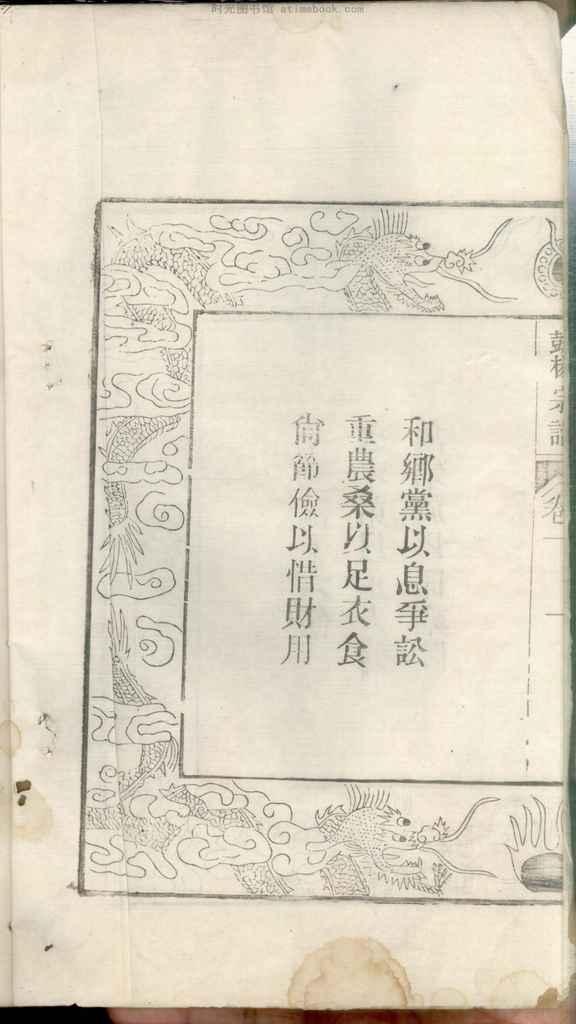 阿光图书馆 atimebook.com
彭楊宗譜 卷一 一
和鄉黨以息爭訟
重農桑以足衣食
尚節儉以惜財用